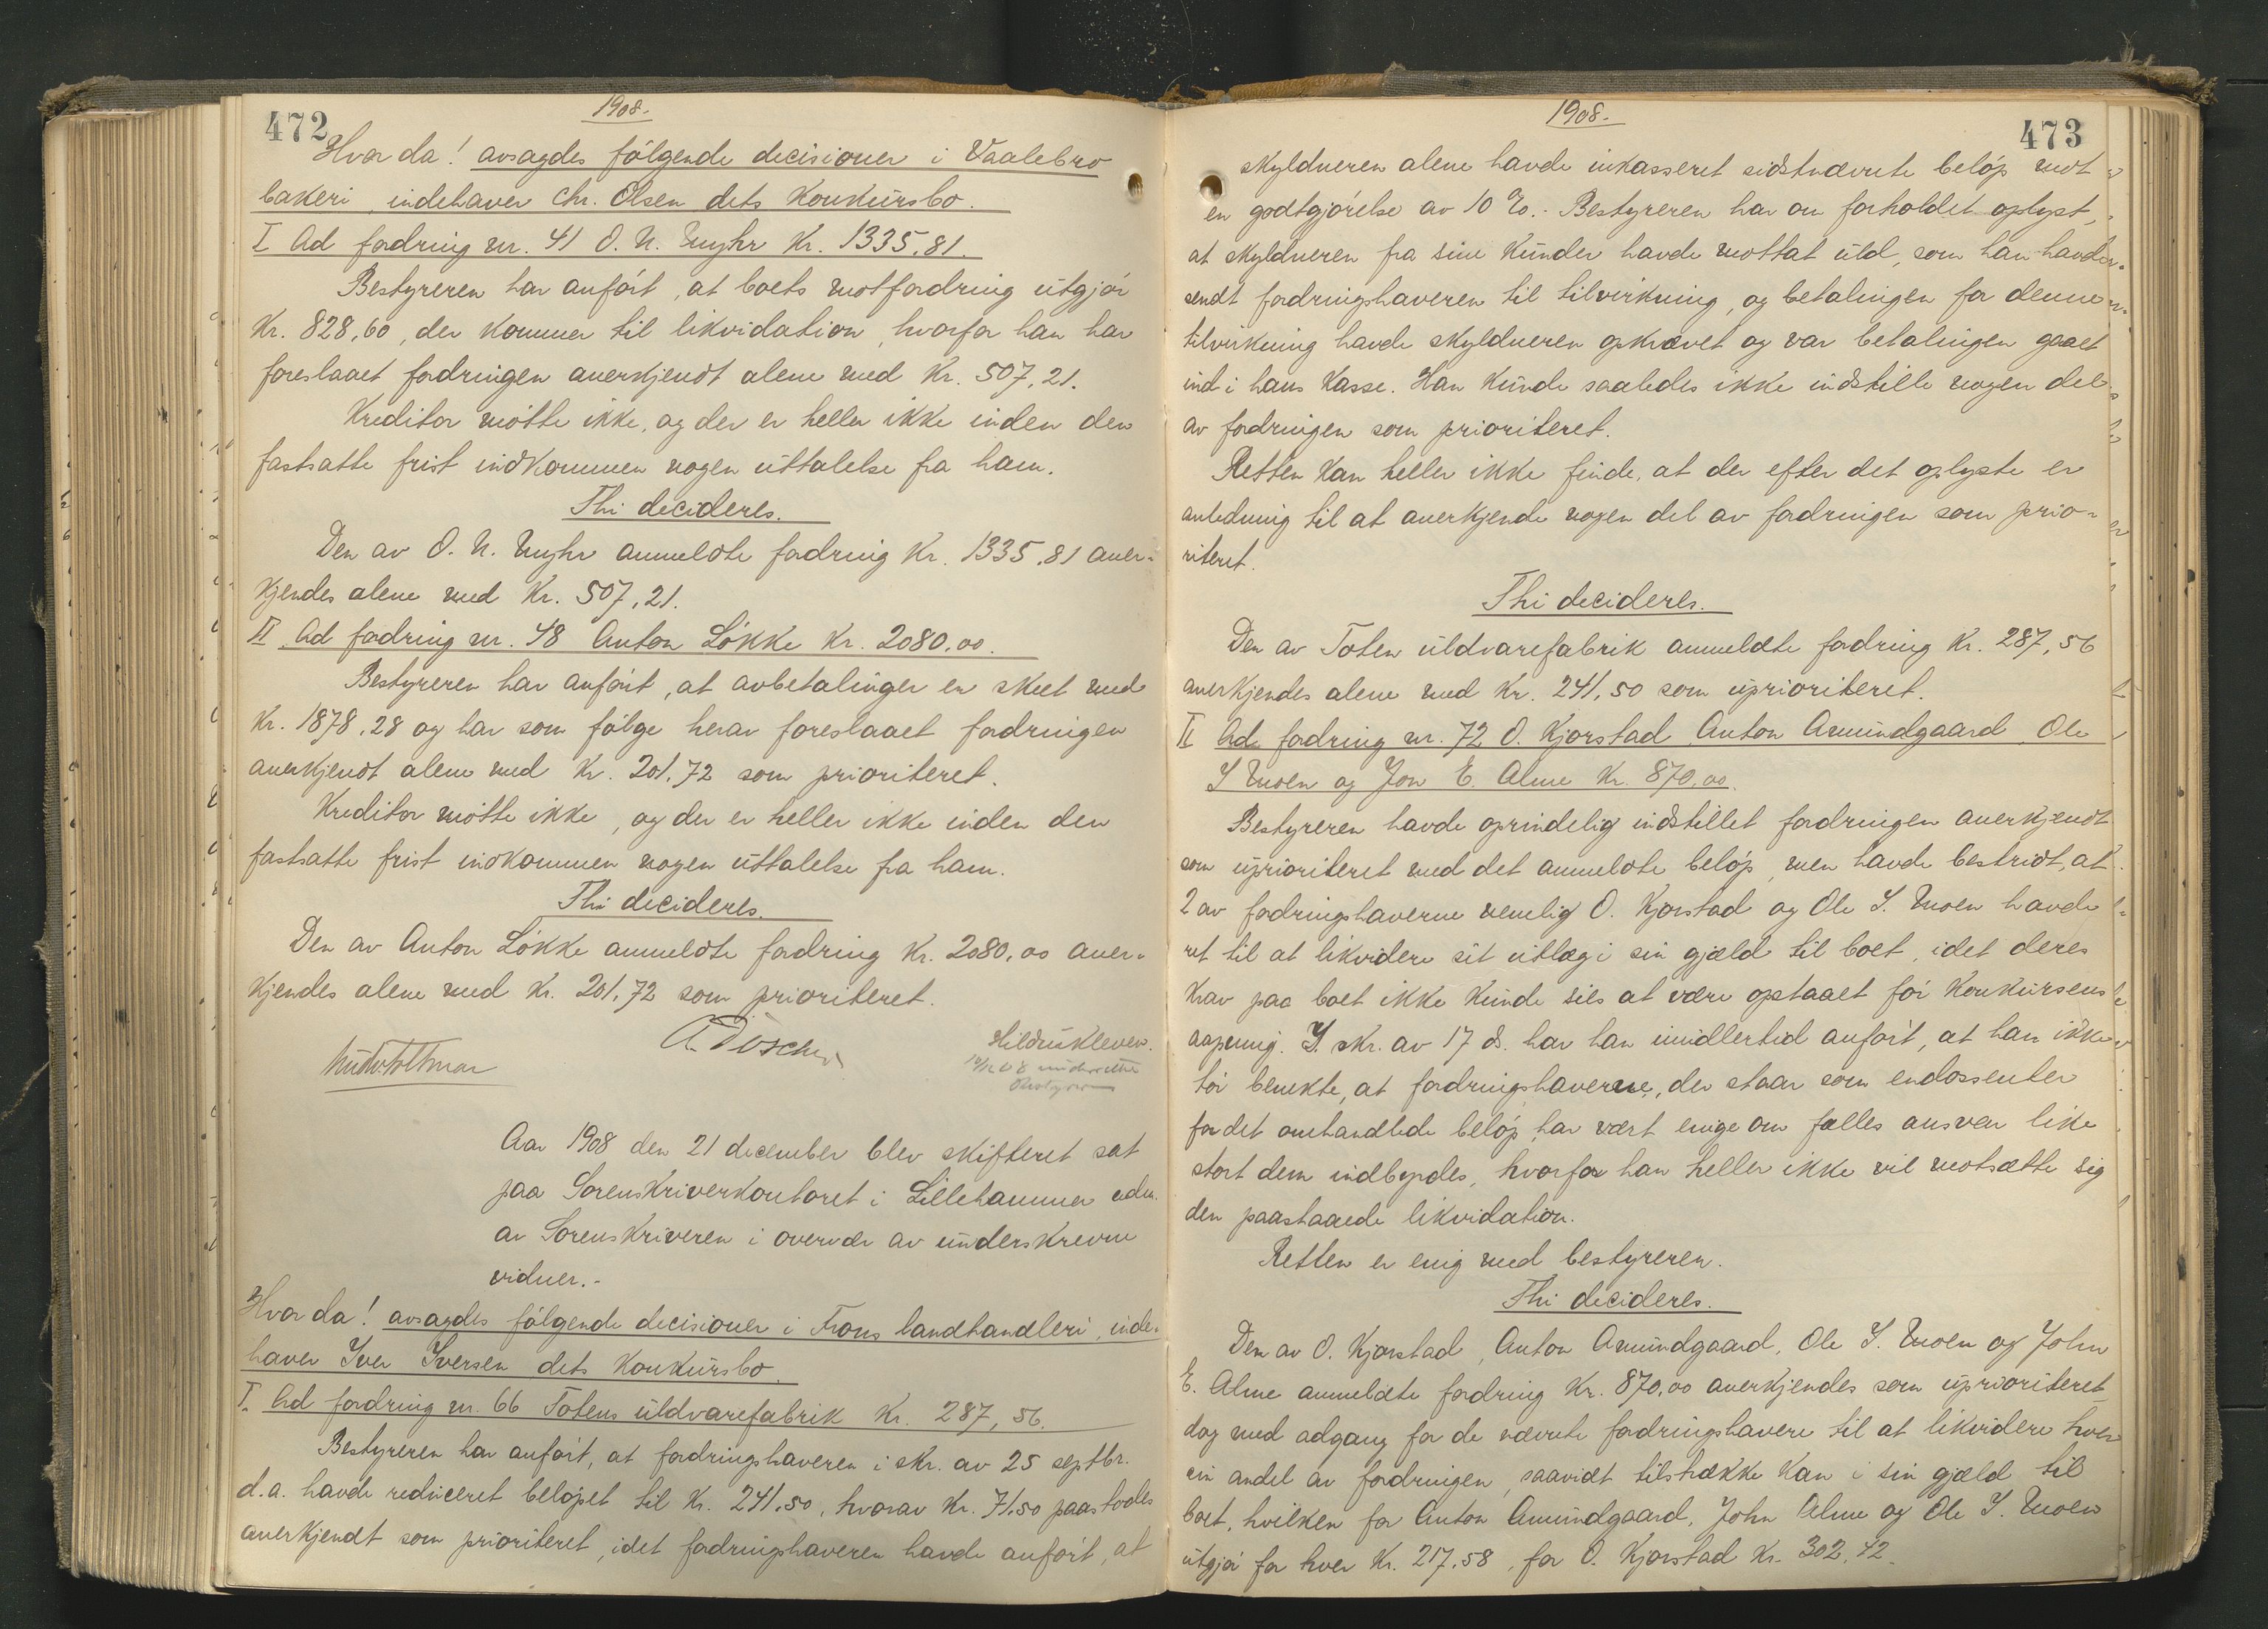 472
1908.
Hvor da! avsagdes følgende decisioner i Vaalebro
bakeri, indehaver Chr. Olsen dets Konkursbo.
I Ad fordring nr. 41 O. N. Myhr Kr. 1335,81.
Bestyreren har anført, at boets motfordring utgjør
Kr. 828,60, der kommer til likvidation, hvorfor han har
foreslaaet fordringen anerkjendt alene med Kr. 507,21.
Kreditor møtte ikke, og der er heller ikke inden den
fastsatte frist indkommen nogen uttalelse fra ham.
Thi decideres.
Den av O. N. Myhr anmeldte fordring Kr. 1335,81 aner-
kjendes alene med Kr. 507,21.
II Ad fordring nr. 48 Anton Løkke Kr. 2080,00.
Bestyreren har anført, at avbetalinger er skeet med
Kr. 1878,28 og har som følge herav foreslaaet fordringen
anerkjendt alene med Kr. 201,72 som prioriteret.
Kreditor møtte ikke, og der er heller ikke inden den
fastsatte frist indkommen nogen uttalelse fra ham.
Thi decideres.
Den av Anton Løkke anmeldte fordring Kr. 2080,00 aner-
kjendes alene med Kr. 201,72 som prioriteret.
Hildur Kleven.
Aar 1908 den 21 december blev skifteret sat
paa Sorenskriverkontoret i Lillehammer adm.
av Sorenskriveren i overvær av underskrevne
vidner.-
Hvor da! avsagdes følgende decisioner i Frons landhandleri, inde-
haver Iver Iversen dets Konkursbo.
I. Ad fordring nr. 66 Totens uldvarefabrik Kr. 287,56.
Bestyreren har anført, at fordringshaveren i skr. av 25 septbr.
d.a. havde reduceret beløpet til Kr. 241,50, hvorav Kr. 71.50 paastodes
anerkjendt som prioriteret, idet fordringshaveren havde anført, at
1908.
473
skyldneren alene havde inkasseret sidstnævnte beløp mot
en godtgjørelse av 10 %.- Bestyreren har om forholdet oplyst,
at skyldneren fra sine Kunder havde mottat uld, som han havde
sendt fordringshaveren til tilvirkning, og betalingen for denne
tilvirkning havde skyldneren opkrævet og var betalingen gaaet
ind i hans Kasse. Han Kunde saaledes ikke indstille nogen del
av fordringen som prioriteret.
Retten Kan heller ikke finde, at der efter det oplyste er
anledning til at anerkjende nogen del av fordringen som prio-
riteret.
Thi decideres.
Den av Toten uldvarefabrik anmeldte fordring Kr. 287,56
anerkjendes alene med Kr. 241,50 som uprioriteret.
II Ad fordring nr. 72 O. Kjorstad, Anton Amundgaard, Ole
I Moen og Jon E. Alme Kr. 870,00.
Bestyreren havde oprindelig indstillet fordringen anerkjendt
som uprioriteret med det anmeldte beløp, men havde bestridt, at
2 av fordringshaverne nemlig O. Kjorstad og Ole I. Moen havde
ret til at likvidere sit utlæg i sin gjæld til boet, idet deres
Krav paa boet ikke Kunde siles at være opstaaet før Konkursens
aapning. I skr. av 17 ds. har han imidlertid anført, at han ikke
tør benekte, at fordringshaverne, der staar som endossenter
for det omhandlede beløp har vært enige om fælles ansvar like
stort dem indbyrdes, hvorfor han heller ikke vil motsætte sig
den paastaaede likvidation.
Retten er enig med bestyreren.
Thi decideres.
Den av O. Kjorstad, Anton Amundgaard, Ole I. Moen og John
E. Alme anmeldte fordring Kr. 870,00 anerkjendes som uprioriteret
dog med adgang for de nævnte fordringshavere til at likvidere hver
sin andel av fordringen, saavidt tilstrække Kan i sin gjæld til
boet, hvilken for Anton Amundgaard, John Alme og Ole I. Moen
utgjør for hver Kr. 217,58, for O. Kjorstad Kr. 302,42.